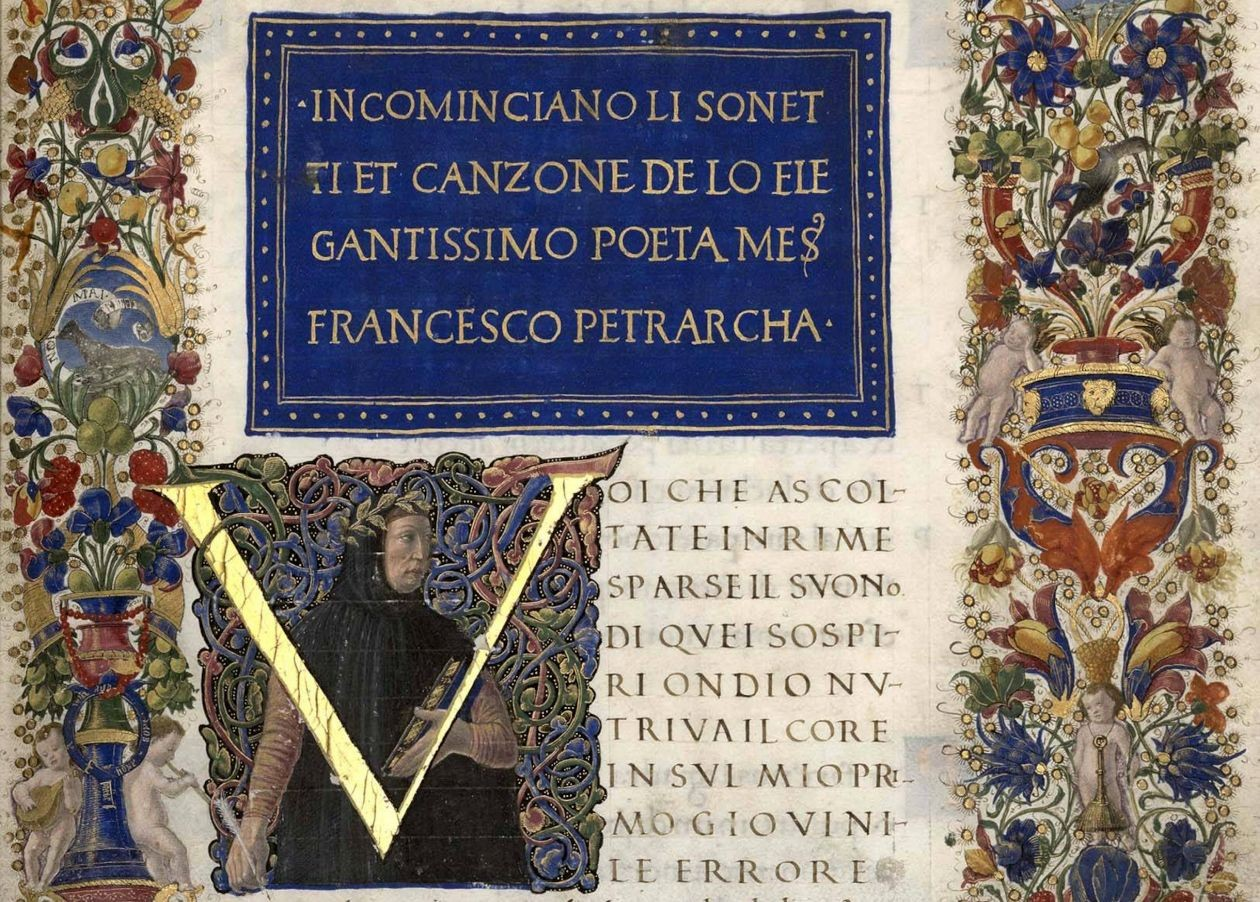 ·INCOMINCIANO LI SONET
TI ET CANZONE DE LO ELE
GANTISSIMO POETA MES
FRANCESCO PETRARCHA·
VOI CHE ASCOL-
TATE IN RIME
SPARSE IL SVONo
DI QVEI SOSPI-
RI ONDIO NV-
TRIVA IL CORE
IN SVL MIO PRI-
MO GIOVINI-
LE ERRORE
MAI